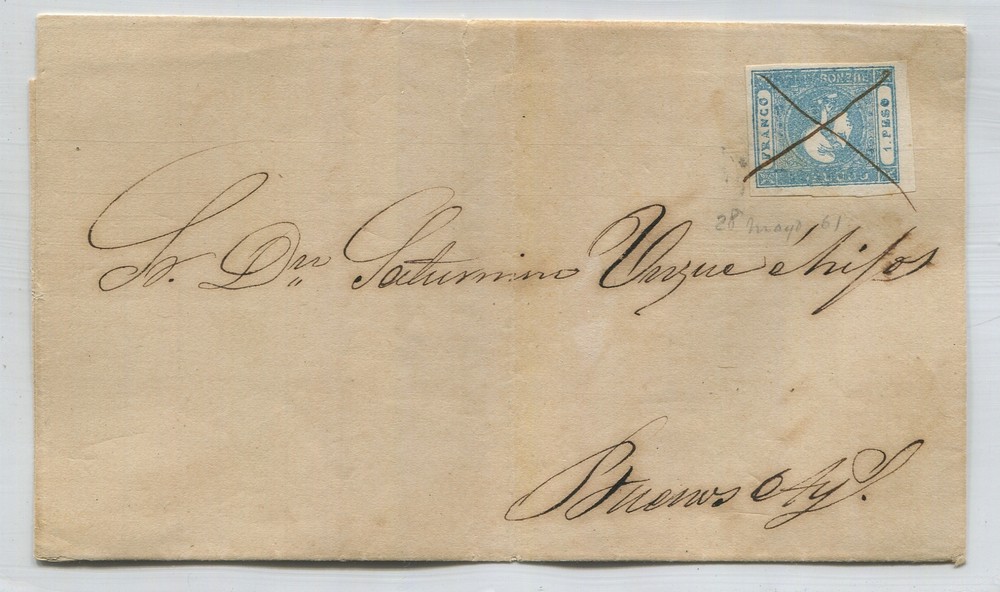 FRANCO
1. PESO
28 mayo 61.
Sr. Dn Saturnino Unzue é hijos
Buenos Ay.s